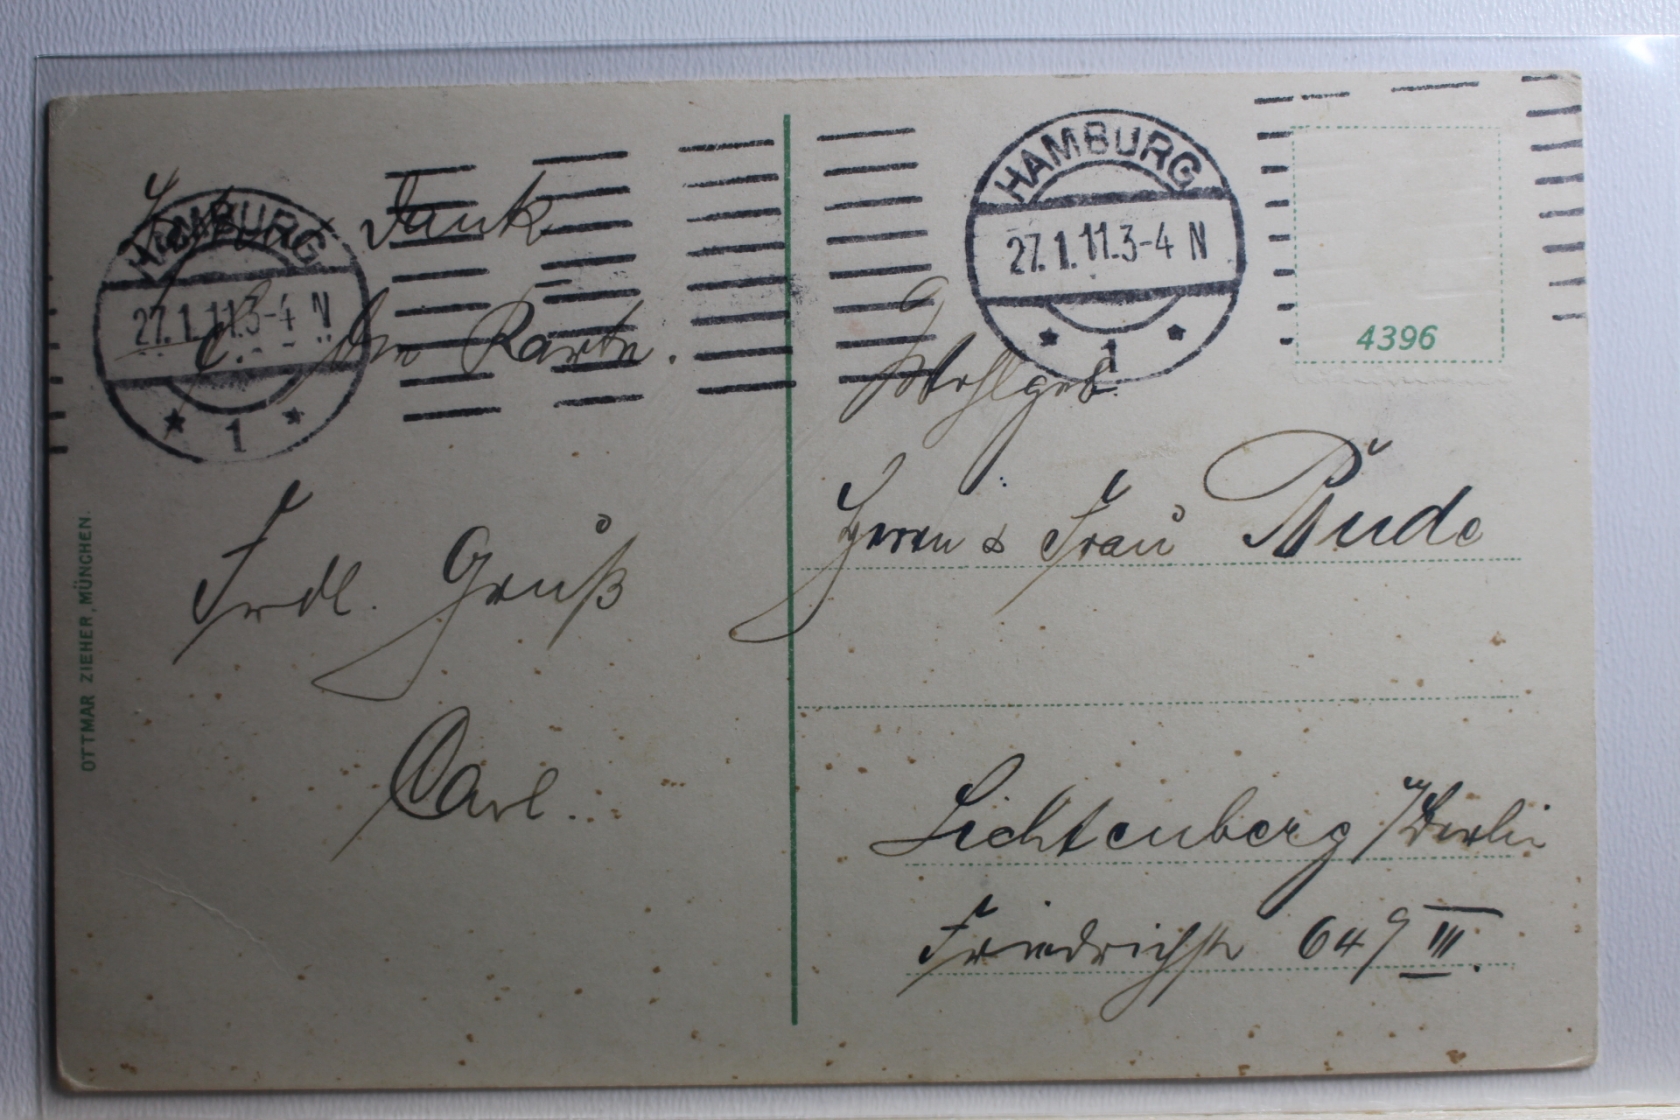 HAMBURG
27.1.11.3-4 N
1
Dank
Karte.
Frdl. Gruß
Carl.
OTTMAR ZIEHER, MÜNCHEN.
HAMBURG
27.1.11.3-4 N
1
4396
Wohlgeb.
Herrn & Frau Rude
Lichtenberg / Berlin
Friedrichstr 64 III.